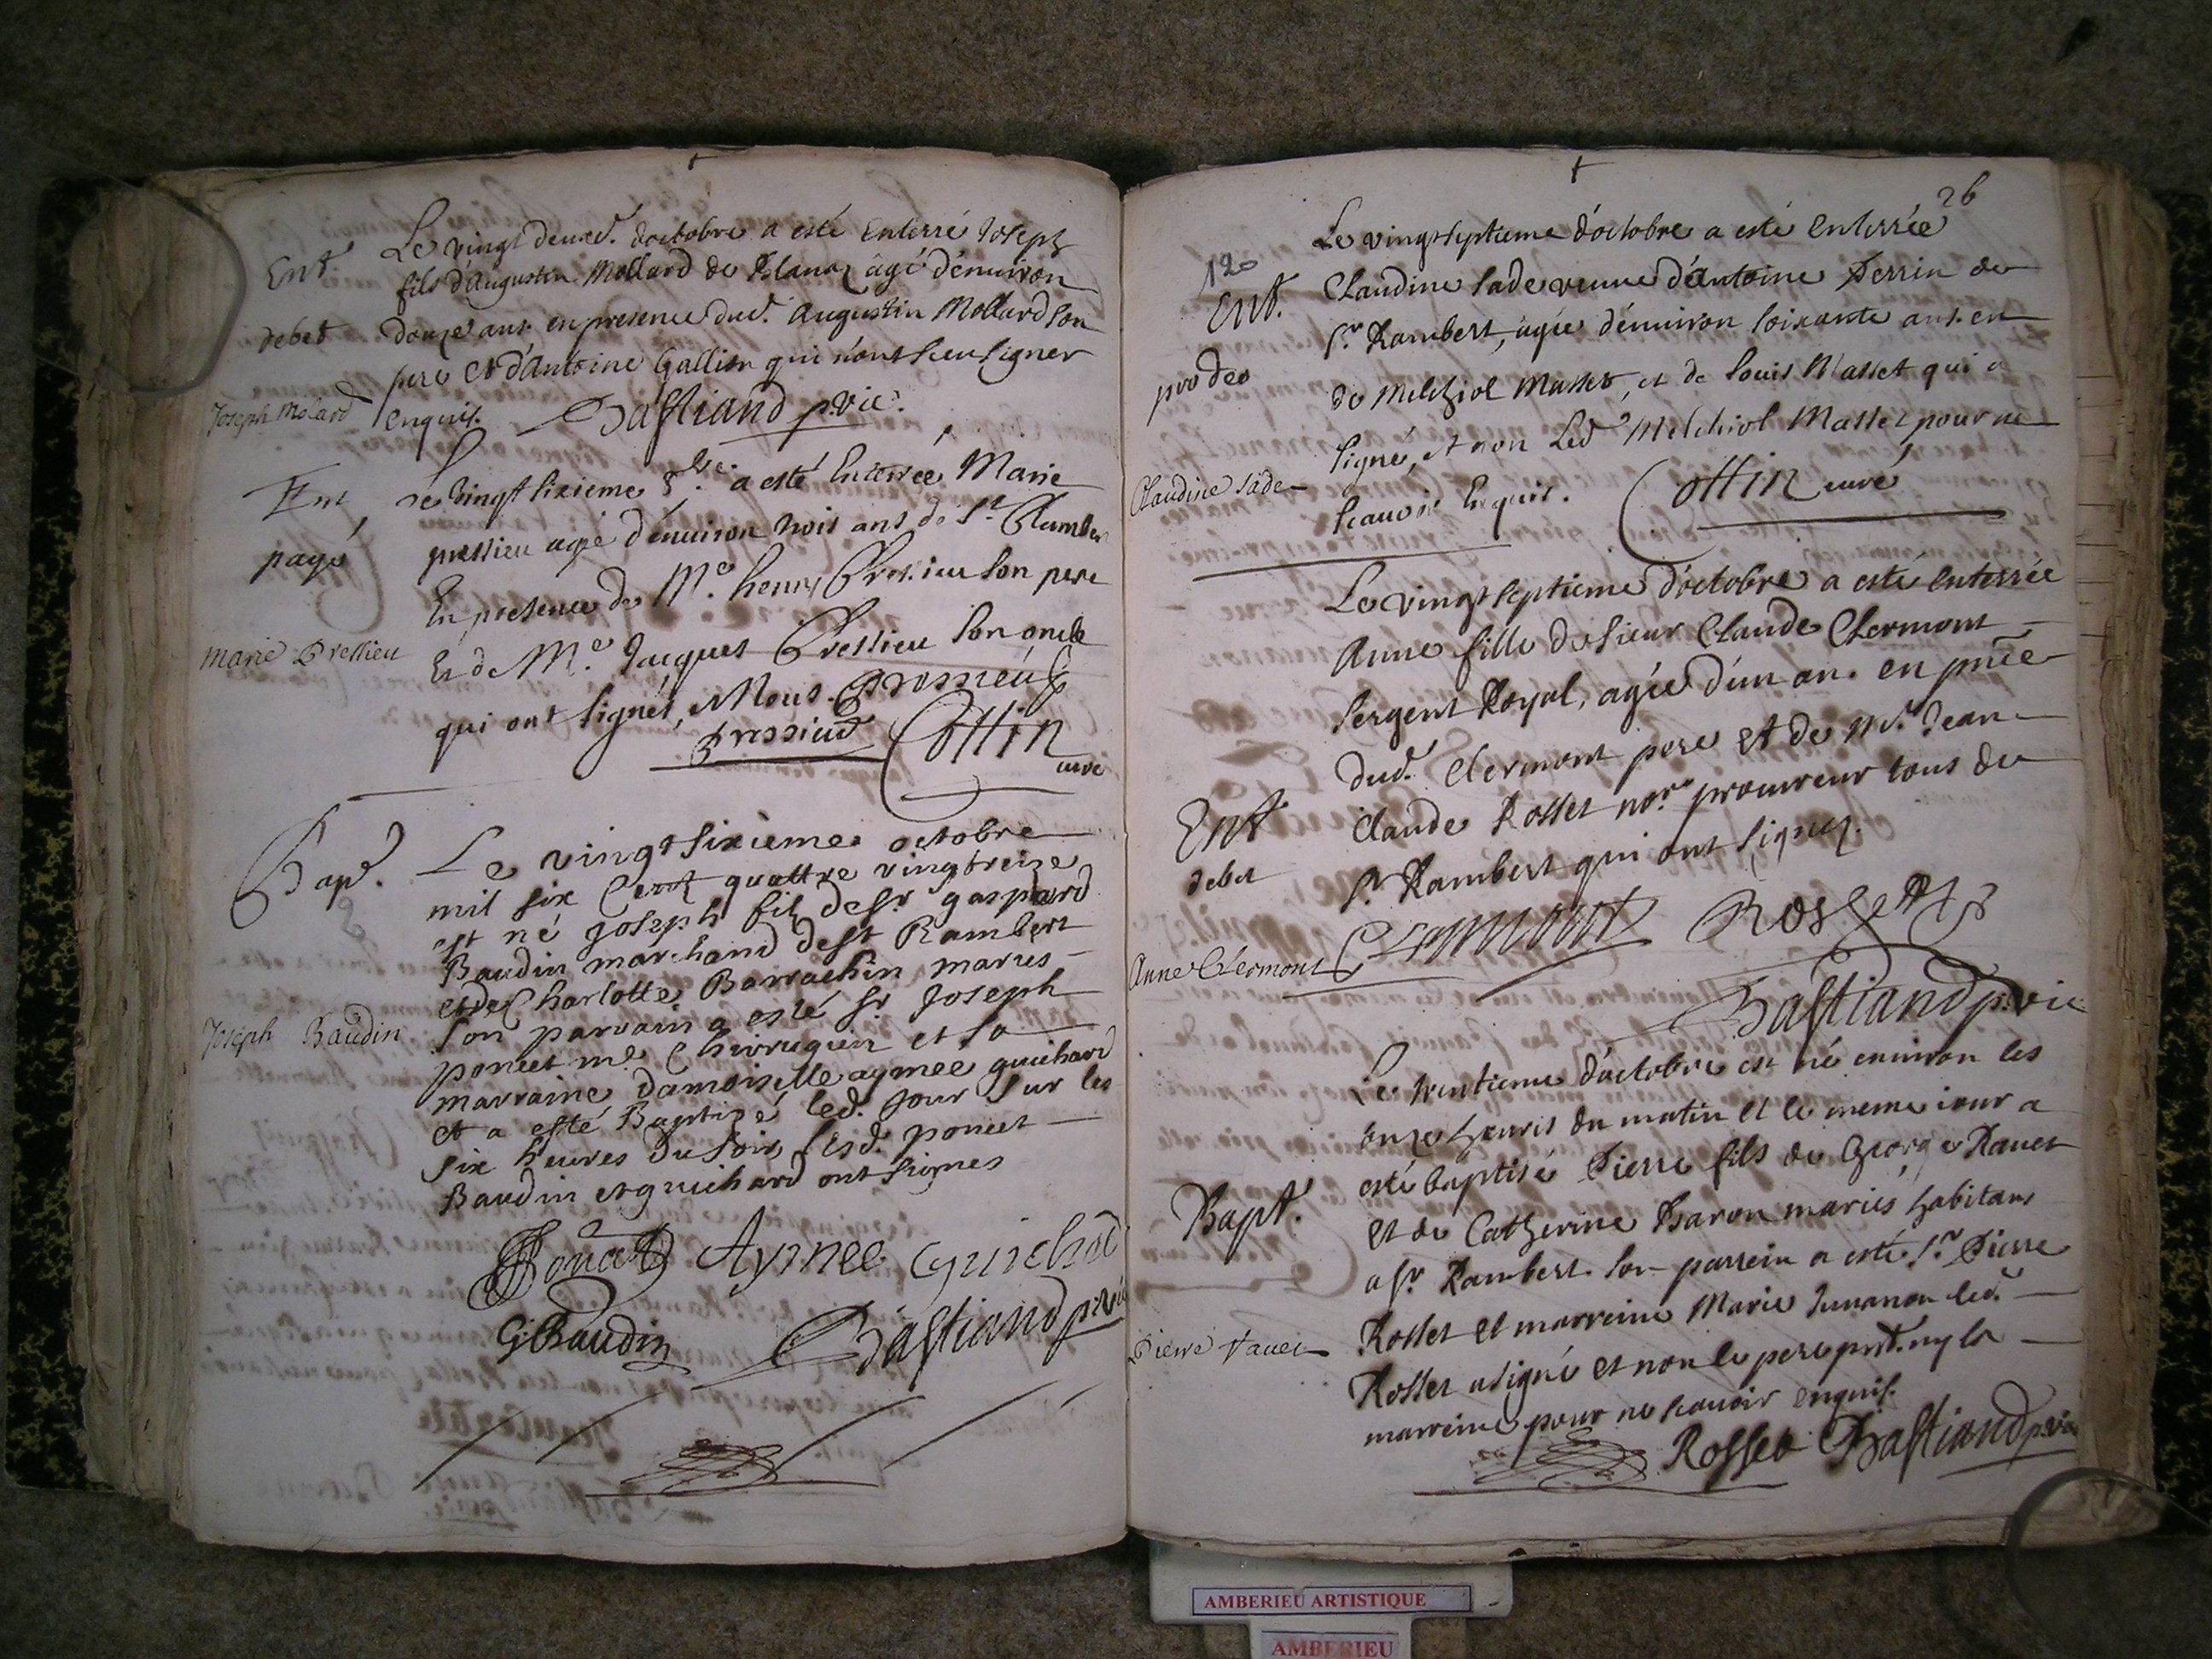 Ent.
debet
Joseph Molard
Le vingt deuxe. doctobre a esté Enterré Joseph
fils d'Augustin Mollard de Blanaz âgé d'enuiron
douze ans. en presence dud. Augustin Mollard son
pere et d'Antoine Gallion qui n'ont sceu signer
enquis. Bastiand p. vic.
Ent
payé
Marie Pressieu
Le vingt sixieme 8.bre a esté Enterrée Marie
pressieu agée d'enuiron trois ans de St. Rambert
En presence de Me. henry Pressieu son pere
Et de Me. Jacques Pressieu son oncle
qui ont signés,
Pressieu Cottin
curé
Bapt.
Joseph Baudin
Le vingt sixieme octobre
mil six Cent quattre vingt treize
est né joseph fils de sr. gaspard
Baudin marchand de st Rambert
et de Charlotte Barrachin maries
son parrain a esté sr. Joseph
poncet me. Chirurgien et sa
marraine damoiselle aymee guichard
et a esté Baptizé led. jour sur les
six heures du soir lesd. poncet
Baudin et guichard ont signes
Poncet Aymee Guichard
G Baudin Bastiand p. vic
26
120
Ent.
pro deo
Claudine Sade
Le vingt septieme d'octobre a esté enterrée
Claudine Sade veuue d'Antoine Perrin de
St. Rambert, agée d'enuiron soixante ans. en
de Melchiol Masset, et de Louis Masset qui a
signé, et non Led. Melchiol Masset pour ne
scauoir Enquis. Cottin curé
Ent
debet
Anne Clermont
Le vingt septieme d'octobre a esté enterrée
Anne fille de sieur Claude Clermont
sergent Royal, agée d'un an. en pnce
dud. Clermont pere et de Mr. Jean
Claude Rosset nore. procureur tous de
St. Rambert qui ont signez.
Clermont Rossett
Bastiand p. vic
Bapt.
Pierre Rauet
Le trentieme d'octobre est né enuiron les
onze heures du matin et le meme iour a
esté baptisé Pierre fils de George Rauet
et de Catherine Baron mariés habitans
a St. Rambert. son parrein a esté Sr. Pierre
Rosset et marreine Marie led.
Rosset a signé et non le pere pnt. ny la
marreine pour ne scauoir enquis.
Rosset Bastiand p. vic
AMBERIEU ARTISTIQUE
AMBERIEU